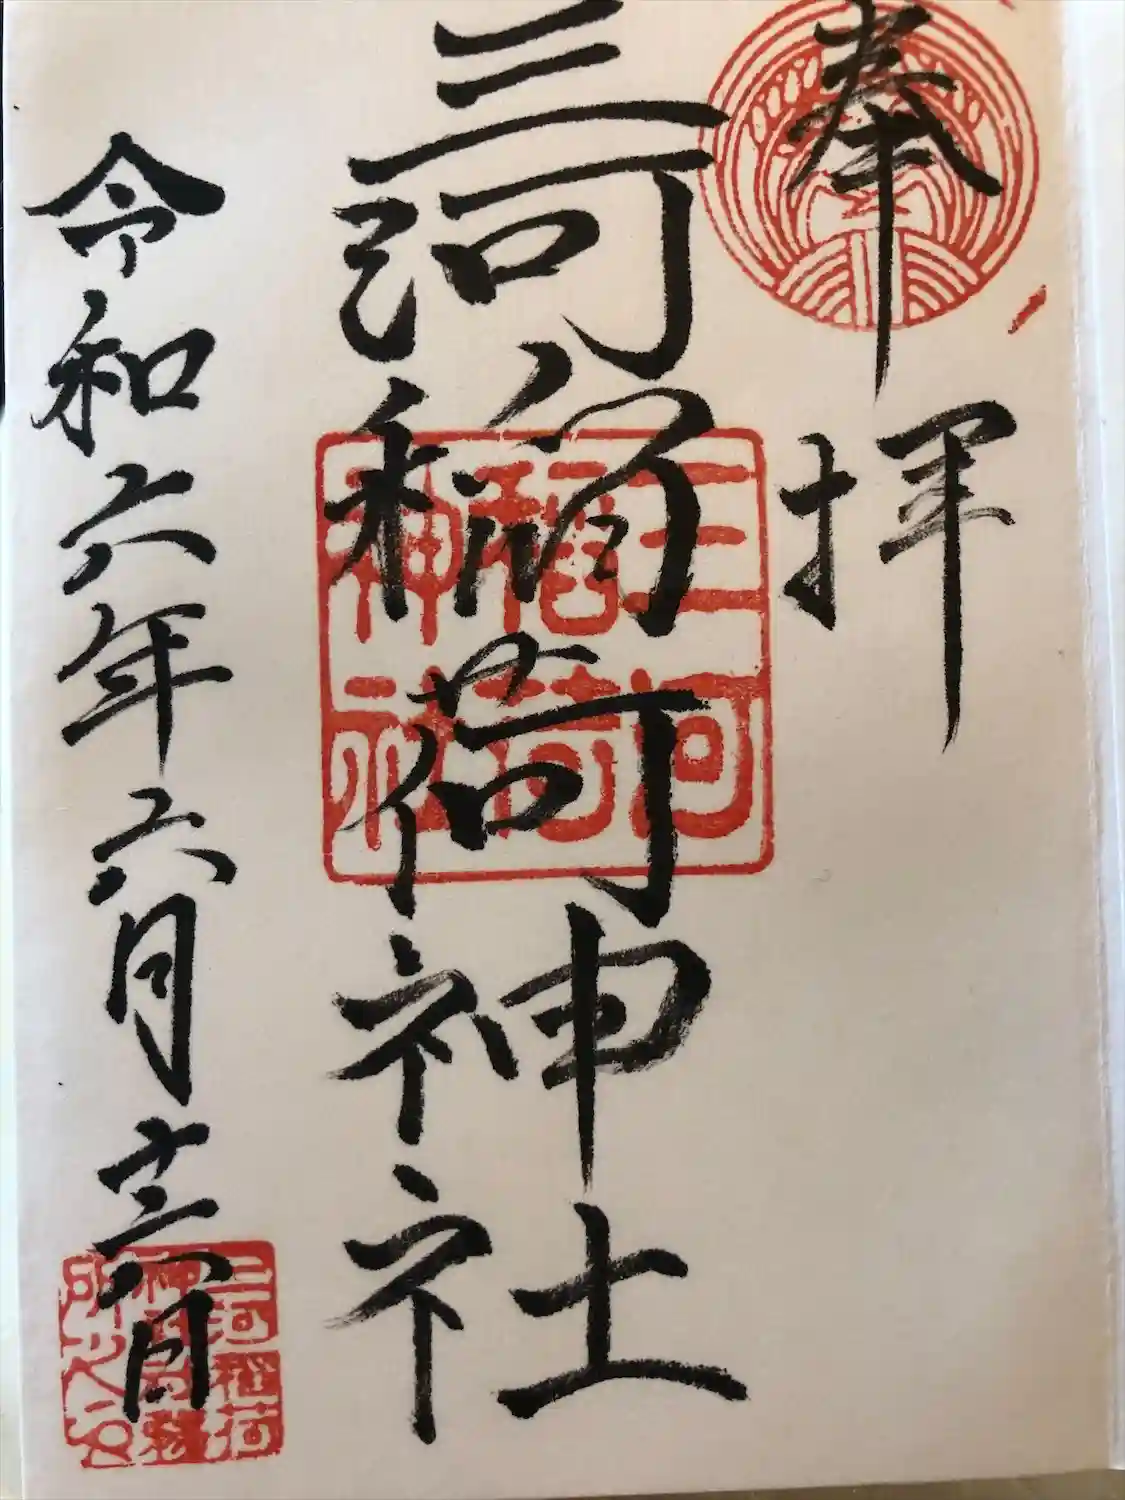 奉拝
三河稲荷神社
三河
稲荷
神社
令和六年六月十六日
三河稲荷
神社社務
所之印